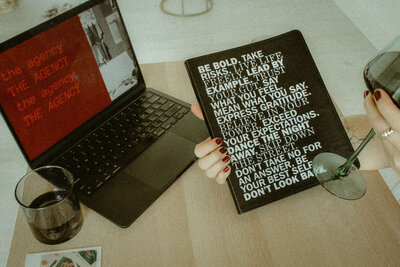 the agency
THE AGENCY
the agency
THE AGENCY
BE BOLD. TAKE
RISKS. LIVE LIFE
FREELY. LEAD BY
EXAMPLE. SAY
WHAT YOU FEEL.
MEAN WHAT YOU SAY.
EXPRESS GRATITUDE.
EXCEED
YOUR EXPECTATIONS.
DANCE THE NIGHT
AWAY.
DON'T TAKE NO FOR
AN ANSWER. BE
YOUR BEST SELF.
DON'T LOOK BACK.